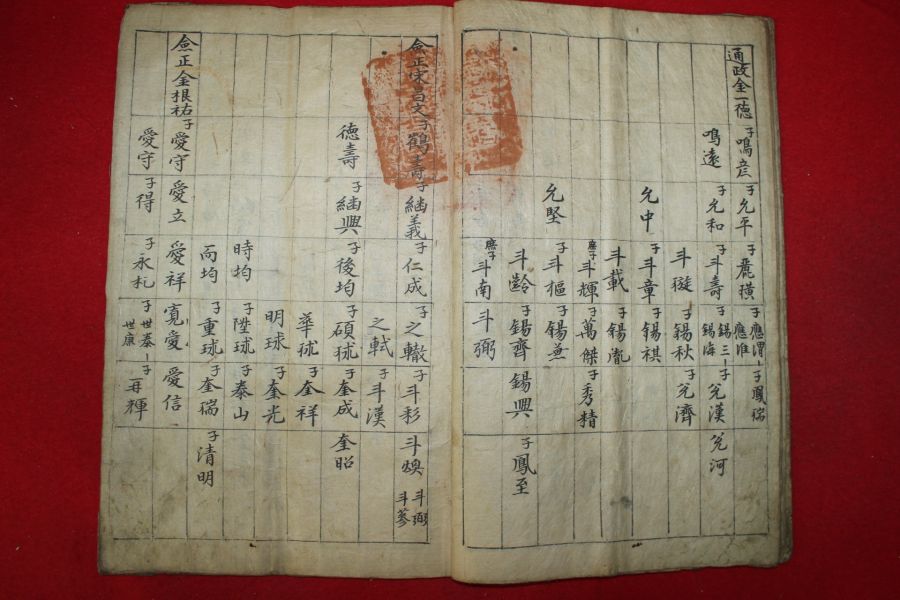 通政全一德 子鳴彦 子允平 子麗横 子應渭 子鳳瑞
應淮
鳴遠 子允和 子斗壽 子錫三 子允漢 允河
錫海
斗璇 子錫秋 子允濟
允中 子斗章 子錫祺
斗載 子錫胤
庶子斗輝 子萬傑 子秀精
允堅 子斗樞 子錫兼
斗齡 子錫齊 錫興 子鳳至
庶子斗南 斗弼
僉正宋昌文 子鶴壽 子緬義 子仁成 子之轍 子斗彩 斗煥 斗弼
斗蔘
之軾 子斗漢
德壽 子緬興 子後均 子碩球 子奎成 奎昭
華球 子奎祥
明球 子奎光
時均 子陞球 子泰山
而均 子重球 子奎瑞 子清明
僉正金根祐 子愛守 愛立 愛祥 寬愛 愛信
愛守 子得 子永札 子世泰 子再輝
世康